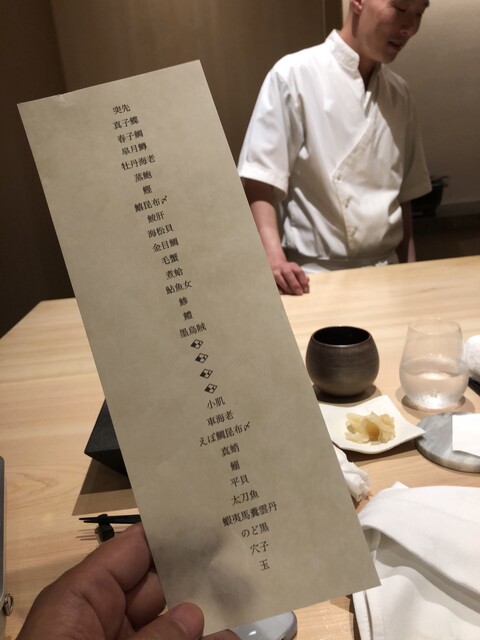 突先
真子鰈
春子鯛
皐月鱒
牡丹海老
蒸鮑
鰹
鰆昆布〆
鮟肝
海松貝
金目鯛
毛蟹
煮蛤
鮎魚女
鯵
鱧
墨烏賊
小肌
車海老
えぼ鯛昆布〆
真蛸
鰯
平貝
太刀魚
蝦夷馬糞雲丹
のど黒
穴子
玉